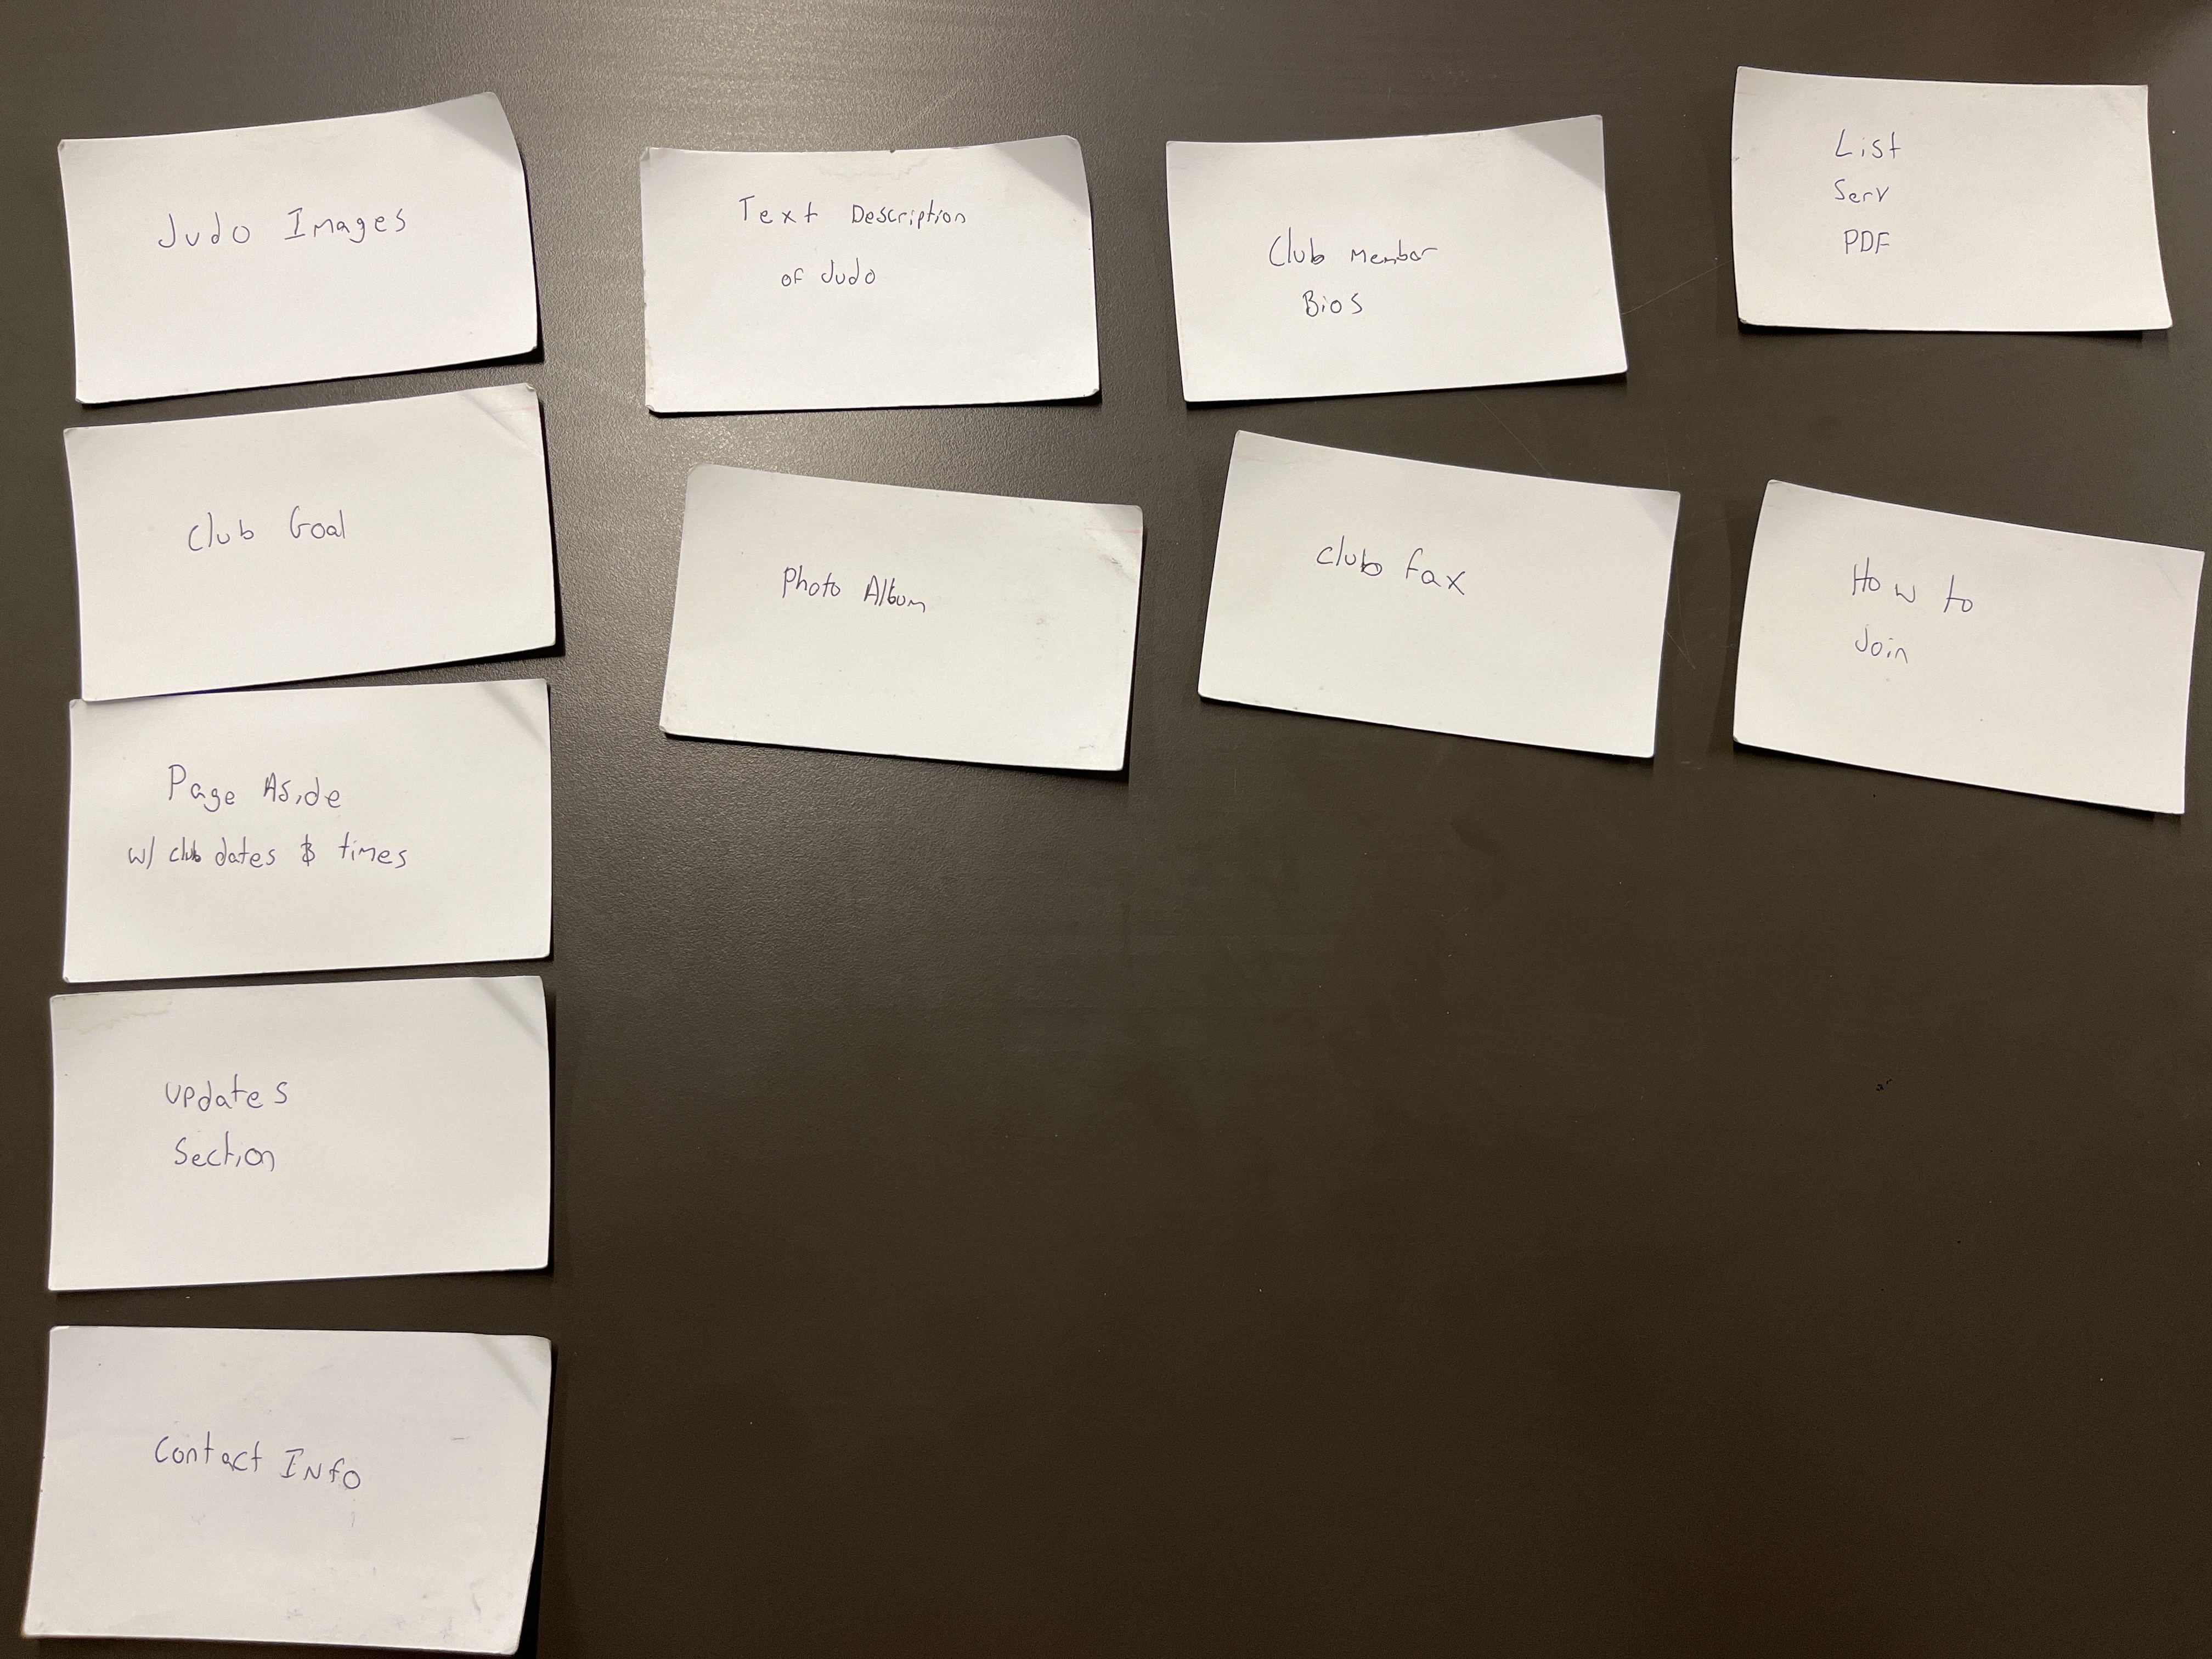 Judo Images
Club Goal
Page Aside
w/ club dates & times
updates
Section
Contact Info
Text Description
of Judo
Photo Album
Club Member
Bios
Club fax
List
Serv
PDF
How to
Join